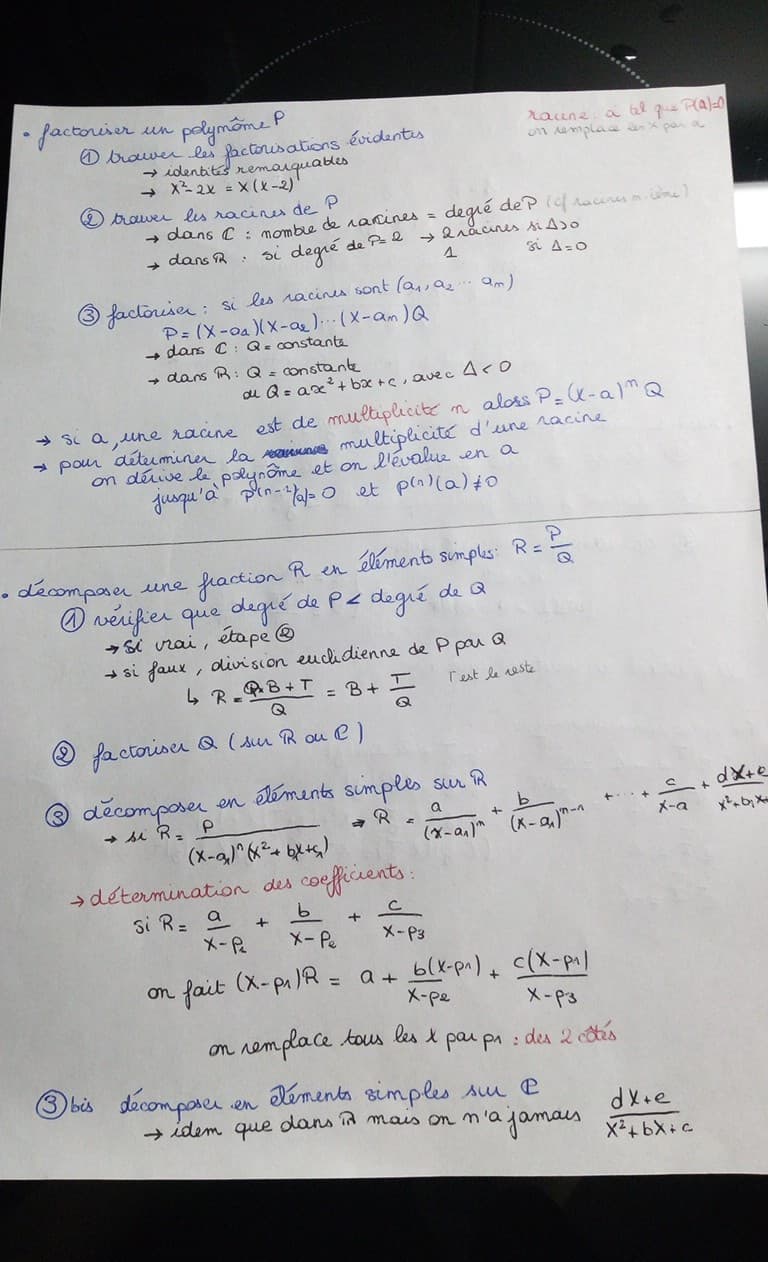 • factoriser un polynôme P
racine : a tel que P(a)=0
on remplace les X par a
① trouver les factorisations évidentes
→ identités remarquables
→ X²-2X = X(X-2)
② trouver les racines de P
→ dans ℂ : nombre de racines = degré de P (cf racines n-ième)
→ dans ℝ : si degré de P=2 → 2 racines si Δ>0
1 si Δ=0
③ factoriser : si les racines sont (a₁, a₂ ... aₙ)
P=(X-a₁)(X-a₂)...(X-aₙ)Q
→ dans ℂ : Q = constante
→ dans ℝ : Q = constante
ou Q = ax²+bx+c, avec Δ<0
→ si a, une racine est de multiplicité n alors P=(X-a)ⁿ Q
→ pour déterminer la multiplicité d'une racine
on dérive le polynôme et on l'évalue en a
jusqu'à P⁽ⁿ⁻¹⁾(a)=0 et P⁽ⁿ⁾(a)≠0
• décomposer une fraction R en éléments simples: R = P/Q
① vérifier que degré de P < degré de Q
→ si vrai, étape ②
→ si faux, division euclidienne de P par Q
↳ R = (Q×B+T)/Q = B + T/Q T est le reste
② factoriser Q (sur ℝ ou ℂ)
③ décomposer en éléments simples sur ℝ
→ si R = P/((X-a₁)ⁿ(X²+b₁X+c₁)) ⇒ R = a/(X-a₁)ⁿ + b/(X-a₁)ⁿ⁻¹ + ... + c/(X-a) + (dX+e)/(X²+b₁X+
→ détermination des coefficients :
si R = a/(X-P₁) + b/(X-P₂) + c/(X-P₃)
on fait (X-p₁)R = a + b(X-p₁)/(X-p₂) + c(X-p₁)/(X-p₃)
on remplace tous les X par p₁ : des 2 côtés
③bis décomposer en éléments simples sur ℂ
→ idem que dans ℝ mais on n'a jamais (dX+e)/(X²+bX+c)